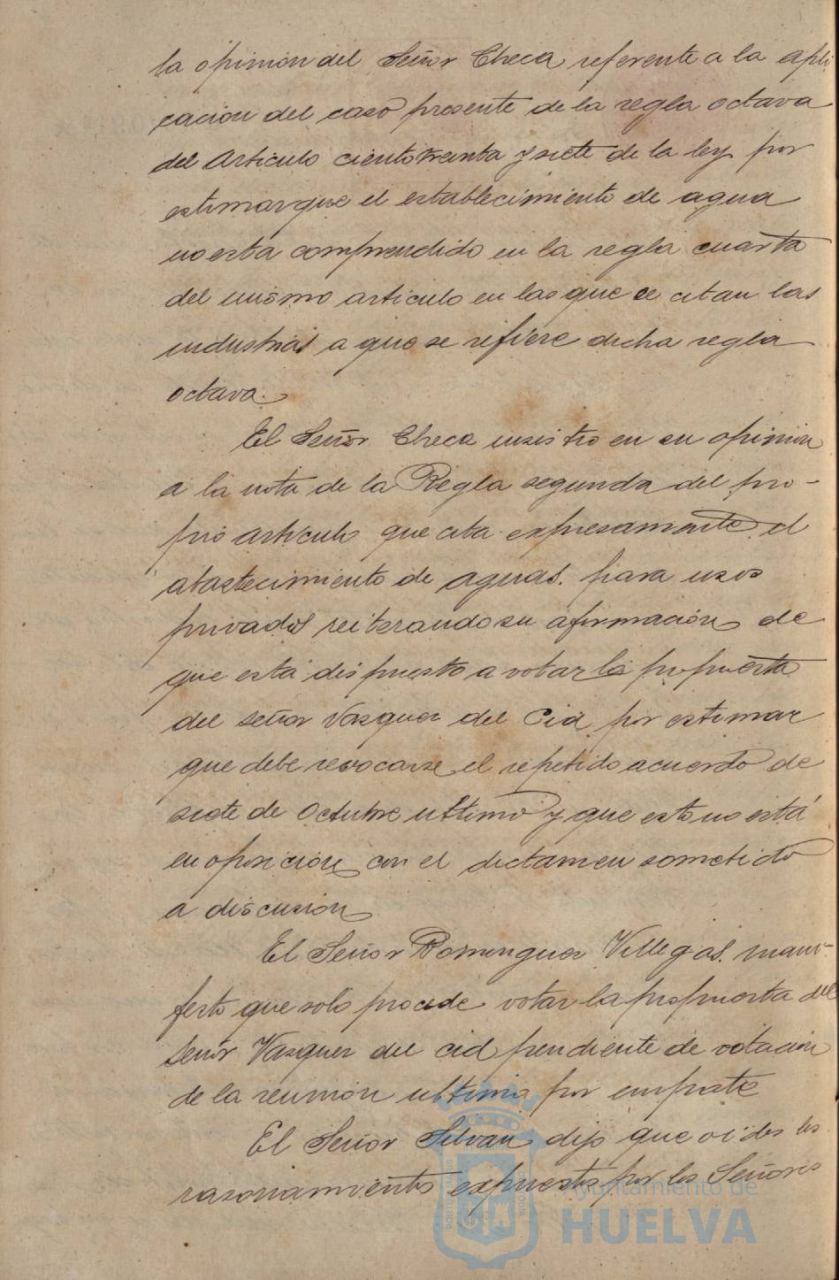 la opinión del Señor Checa referente a la apli
cación del caso presente de la regla octava
del Articulo ciento treinta y siete de la ley por
estimar que el establecimiento de agua
no esta comprendido en la regla cuarta
del mismo articulo en las que se citan las
industrias a que se refiere dicha regla
octava.
El Señor Checa insistio en su opinion
a la nota de la Regla segunda del pro-
pio articulo que cita expresamente el
abastecimiento de aguas. para usos
privados reiterando su afirmación de
que está dispuesto a votar la propuesta
del señor Vasquez del Cid por estimar
que debe revocarse el repetido acuerdo de
siete de Octubre ultimo y que esto no está
en oposición con el dictamen sometido
a discusión
El Señor Dominguez Villegas. mani-
festo que solo procede votar la propuesta del
Señor Vazquez del Cid pendiente de votación
de la reunión ultima por empate
El Señor Silván dijo que oidos los
razonamientos expuestos por los Señores
Ayuntamiento de
HUELVA